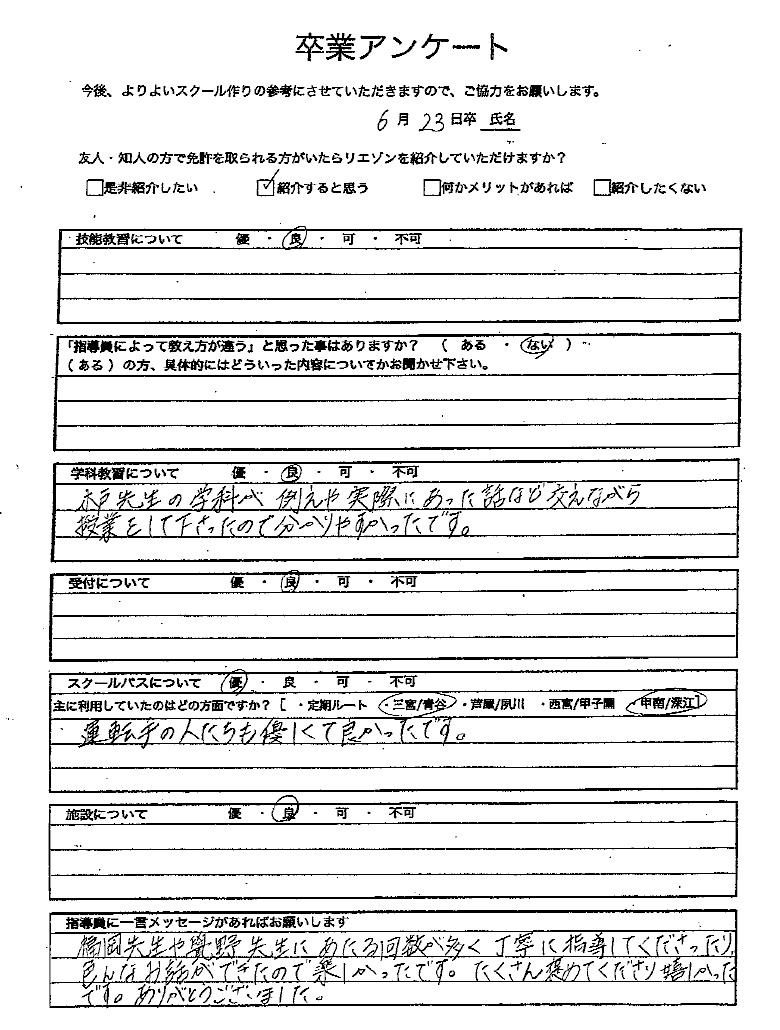 卒業アンケート
今後、よりよいスクール作りの参考にさせていただきますので、ご協力をお願いします。
6月 23日卒 氏名
友人・知人の方で免許を取られる方がいたらリエゾンを紹介していただけますか?
□是非紹介したい ☑紹介すると思う □何かメリットがあれば □紹介したくない
技能教習について 優 ・ 良 ・ 可 ・ 不可
「指導員によって教え方が違う』と思った事はありますか? ( ある ・ ない )
( ある ) の方、具体的にはどういった内容についてかお聞かせ下さい。
学科教習について 優 ・ 良 ・ 可 ・ 不可
水戸先生の学科が 例えや実際にあった話など交えながら
授業をして下さったので分かりやすかったです。
受付について 優 ・ 良 ・ 可 ・ 不可
スクールバスについて 優 ・ 良 ・ 可 ・ 不可
主に利用していたのはどの方面ですか? [ ・定期ルート ・三宮/青谷 ・芦屋/夙川 ・西宮/甲子園 ・甲南/深江]
運転手の人たちも優しくて良かったです。
施設について 優 ・ 良 ・ 可 ・ 不可
指導員に一言メッセージがあればお願いします
先生や 野先生にあたる回数が多く 丁寧に指導してくださったり、
色んなお話ができたので楽しかったです。たくさん褒めてくださり嬉しかった
です。ありがとうございました。